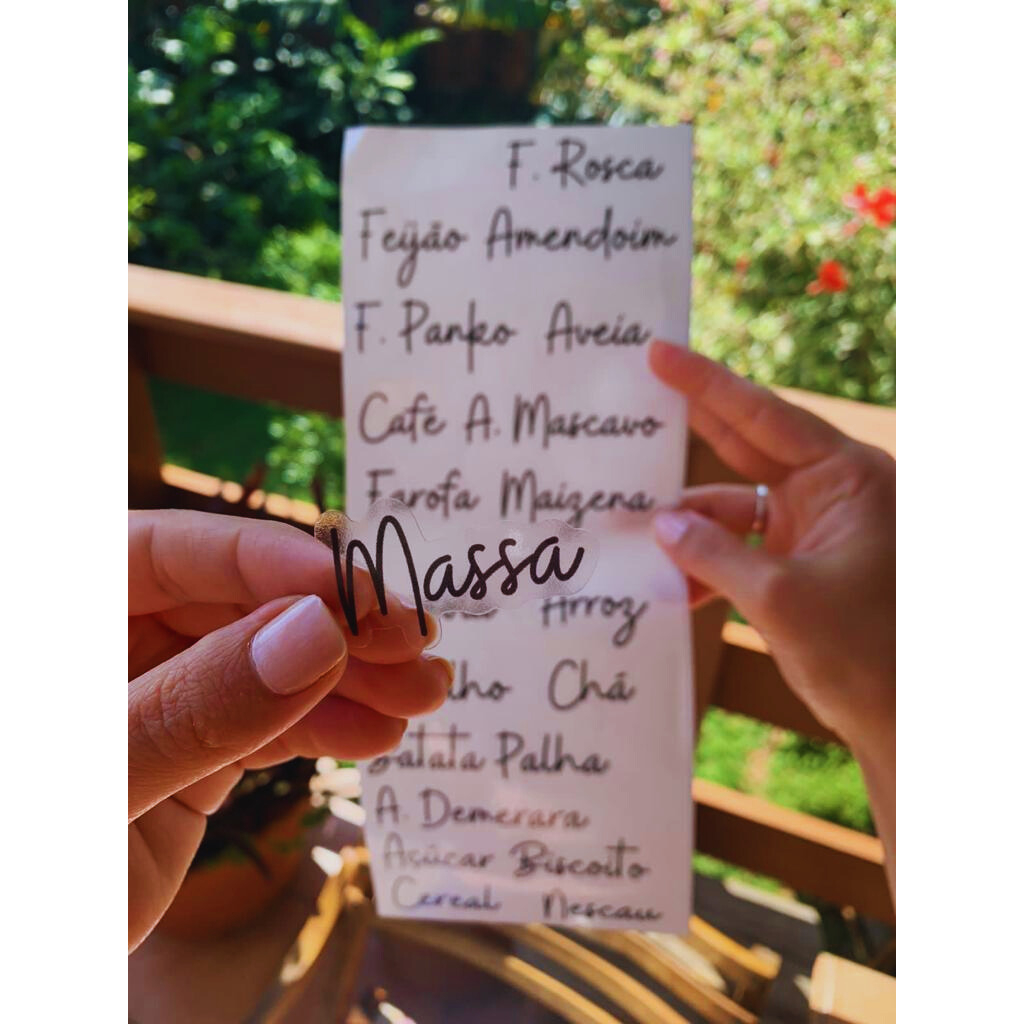 F. Rosca
Feijão Amendoim
F. Panko Aveia
Café A. Mascavo
Farofa Maizena
Massa
Arroz
Chá
Batata Palha
A. Demerara
Açúcar Biscoito
Cereal Nescau